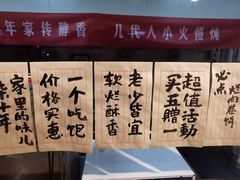 年家传醇香 几代人小火慢炖
必点
超值活動
买五贈一
老少皆宜
软烂酥香
一个吃饱
价格实惠
家里的味儿
十年